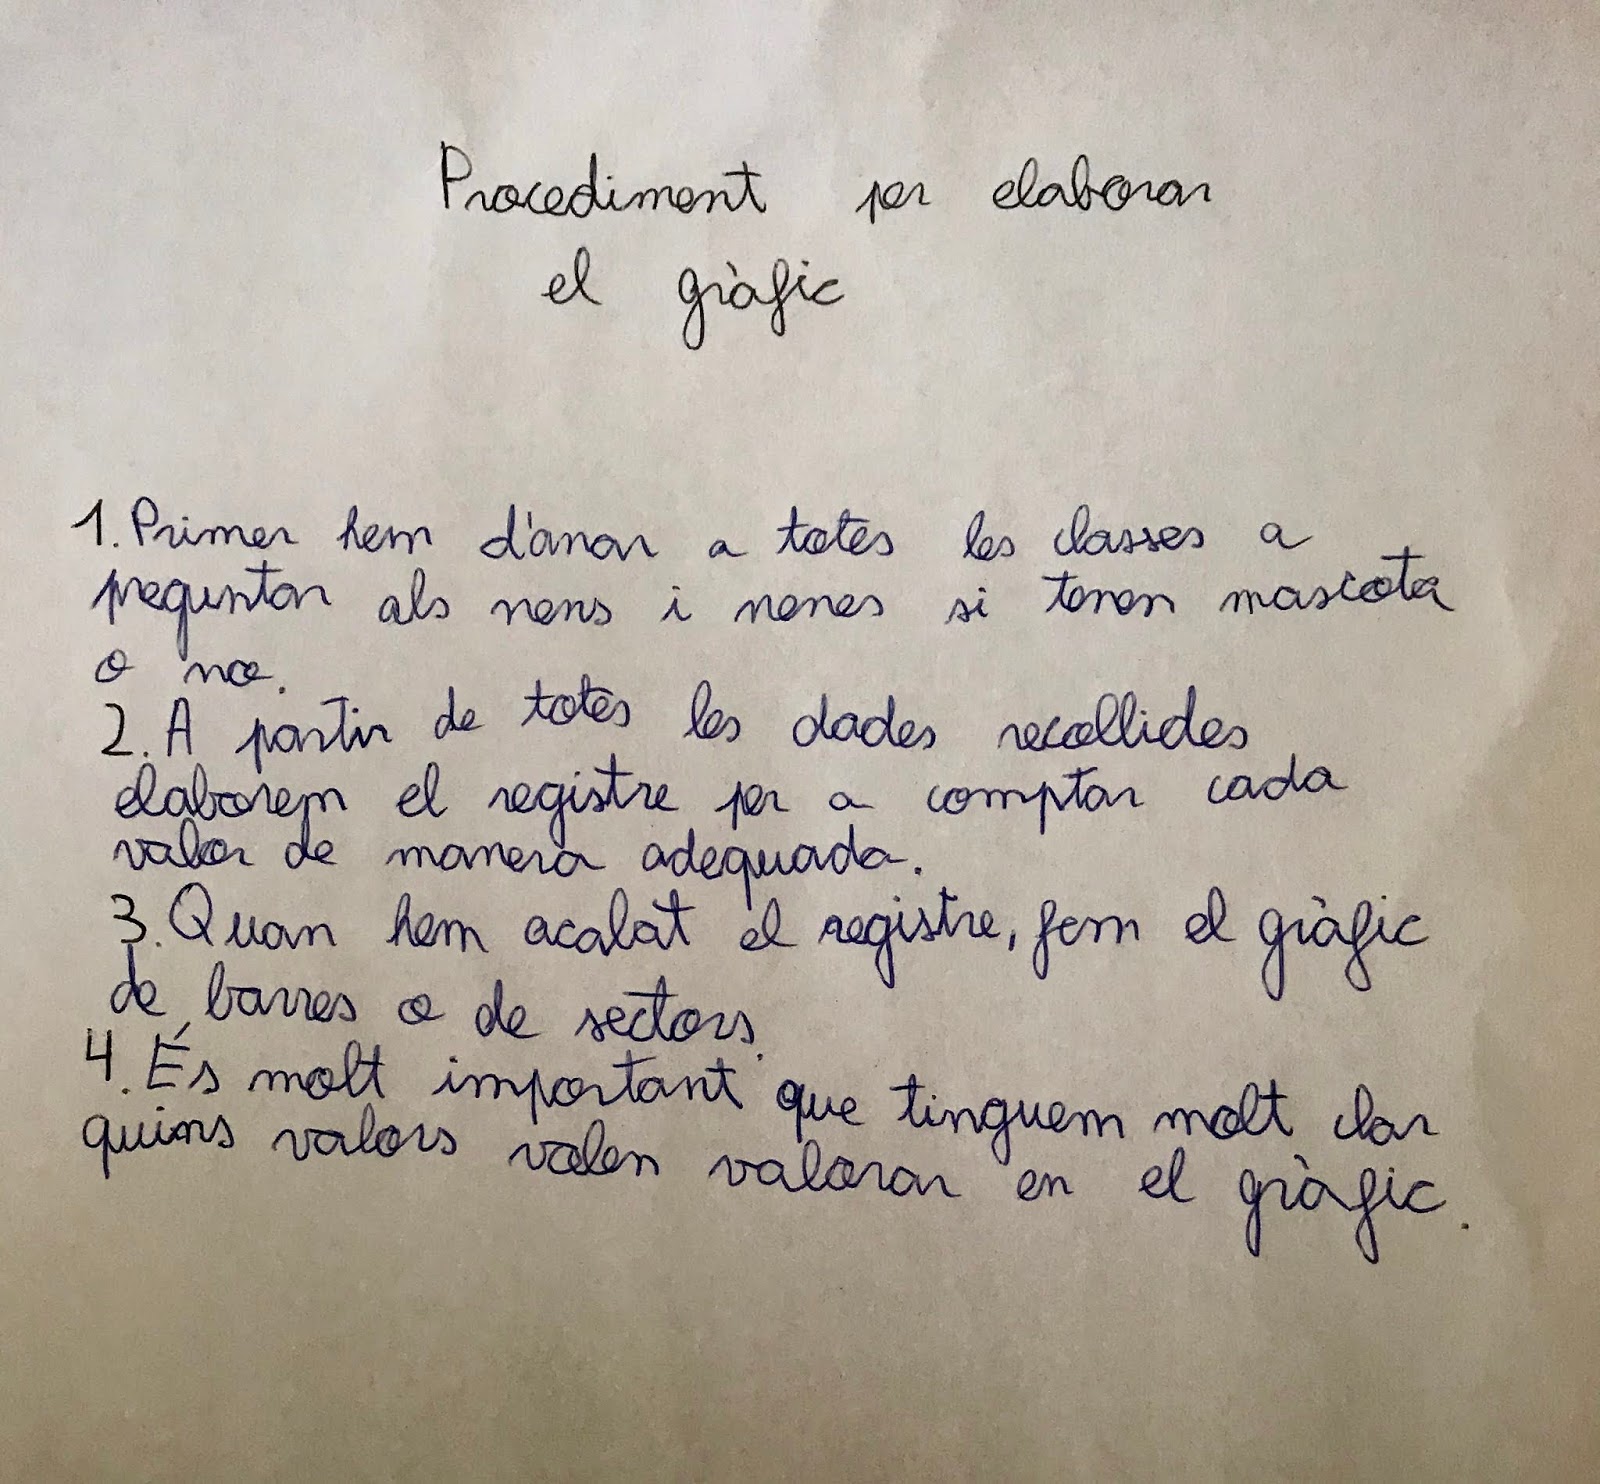 Procediment per elaborar
el gràfic
1. Primer hem d'anar a totes les classes a
preguntar als nens i nenes si tenen mascota
o no.
2. A partir de totes les dades recollides
elaborem el registre per a comptar cada
valor de manera adequada.
3. Quan hem acabat el registre, fem el gràfic
de barres o de sectors.
4. És molt important que tinguem molt clar
quins valors volen valorar en el gràfic.